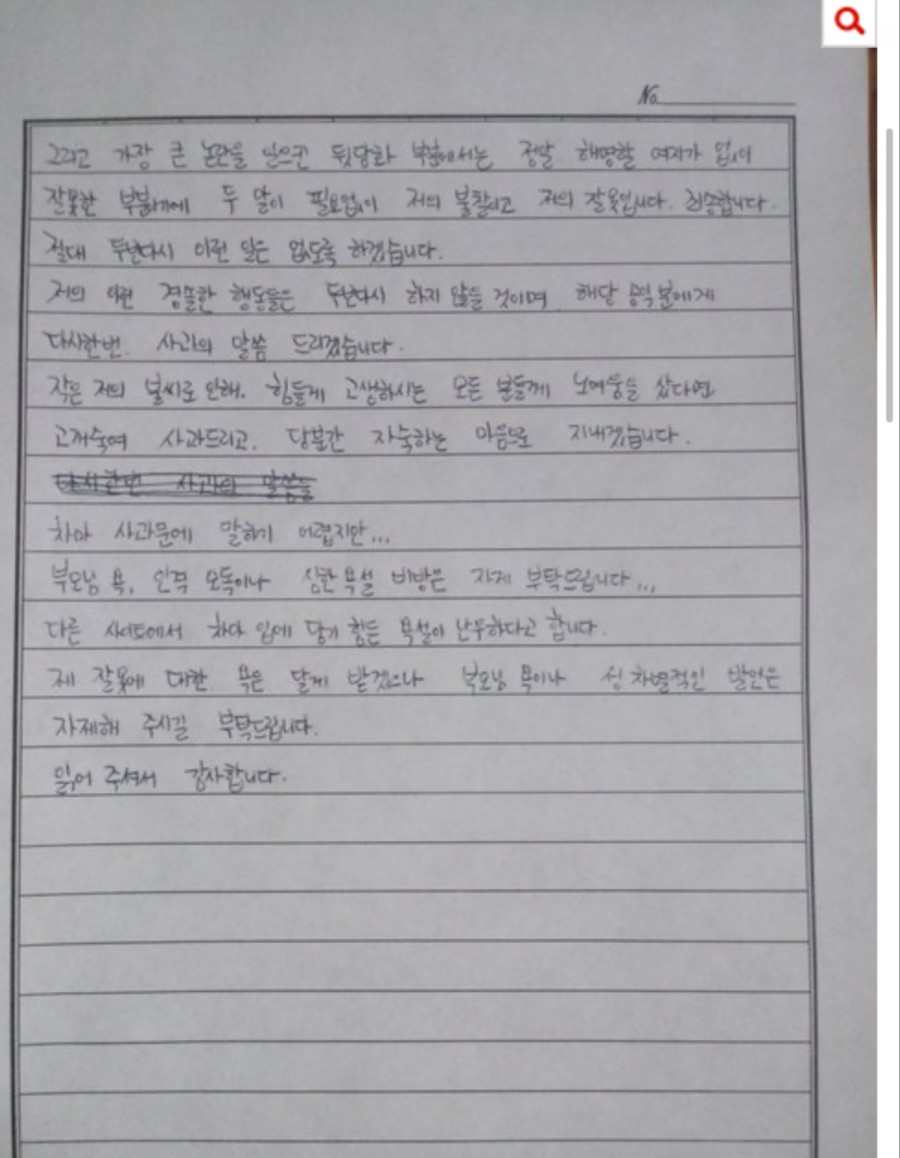 No.
그리고 가장 큰 논란을 일으킨 뒷담화 부분에서는 정말 해명할 여지가 없이
잘못한 부분이기에 두 말이 필요없이 저의 불찰이고 저의 잘못입니다. 죄송합니다.
절대 두번다시 이런 일은 없도록 하겠습니다.
저의 이런 경솔한 행동들은 두번다시 하지 않을 것이며 해당 공익분에게
다시한번 사과의 말씀 드리겠습니다.
작은 저의 불씨로 인해. 힘들게 고생하시는 모든 분들께 노여움을 샀다면
고개숙여 사과드리고. 당분간 자숙하는 마음으로 지내겠습니다.
다시한번 사과의 말씀을
차마 사과문에 말하기 어렵지만...
부모님 욕, 인격 모독이나 심한 욕설 비방은 자제 부탁드립니다...
다른 사이트에서 차마 입에 담기 힘든 욕설이 난무하다고 합니다.
제 잘못에 대한 욕은 달게 받겠으나 부모님 욕이나 성 차별적인 발언은
자제해 주시길 부탁드립니다.
읽어 주셔서 감사합니다.